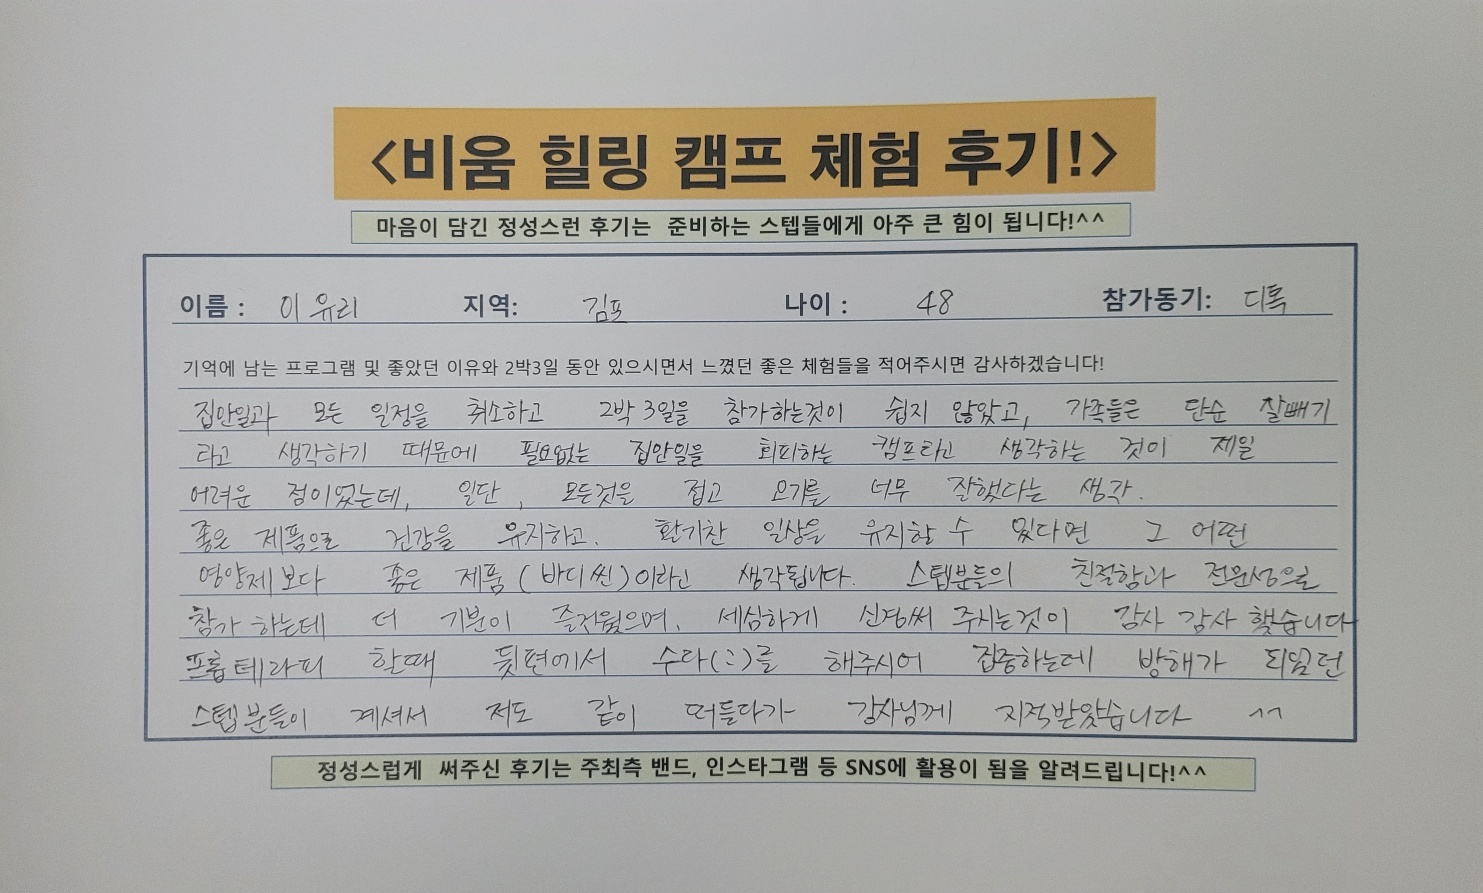 <비움 힐링 캠프 체험 후기!>
마음이 담긴 정성스런 후기는 준비하는 스텝들에게 아주 큰 힘이 됩니다!^^
이름 : 이유리 지역: 김포 나이 : 48 참가동기: 디톡
기억에 남는 프로그램 및 좋았던 이유와 2박3일 동안 있으시면서 느꼈던 좋은 체험들을 적어주시면 감사하겠습니다!
집안일과 모든 일정을 취소하고 2박 3일을 참가하는것이 쉽지 않았고, 가족들은 단순 살빼기
라고 생각하기 때문에 필요없는 집안일을 회피하는 캠프라고 생각하는 것이 제일
어려운 점이었는데, 일단, 모든것을 접고 오기를 너무 잘했다는 생각.
좋은 제품으로 건강을 유지하고. 활기찬 일상을 유지할 수 있다면 그 어떤
영양제보다 좋은 제품 (바디씬)이라고 생각됩니다. 스텝분들의 친절함과 전문성으로
참가 하는데 더 기분이 즐거웠으며, 세심하게 신경써 주시는것이 감사 감사 했습니다
프롭테라피 할때 뒷편에서 수다(:;)를 해주시어 집중하는데 방해가 되었던
스텝분들이 계셔서 저도 같이 떠들다가 강사님께 지적받았습니다 ^^
정성스럽게 써주신 후기는 주최측 밴드, 인스타그램 등 SNS에 활용이 됨을 알려드립니다!^^